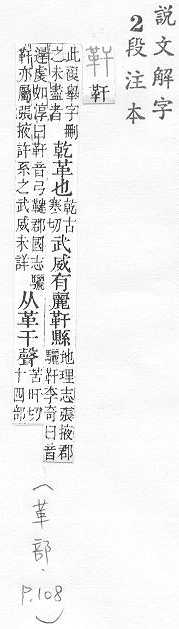 說文解字
2段注本
靬
靬
此複舉字刪
之未盡者
乾革也
乾古
寒切
武威有麗靬縣
地理志張掖郡
驪靬李奇曰音
遲虔如淳曰靬音弓鞬郡國志驪
靬亦屬張掖許系之武威未詳
从革干聲
苦旰切
十四部
(革部.P.108)